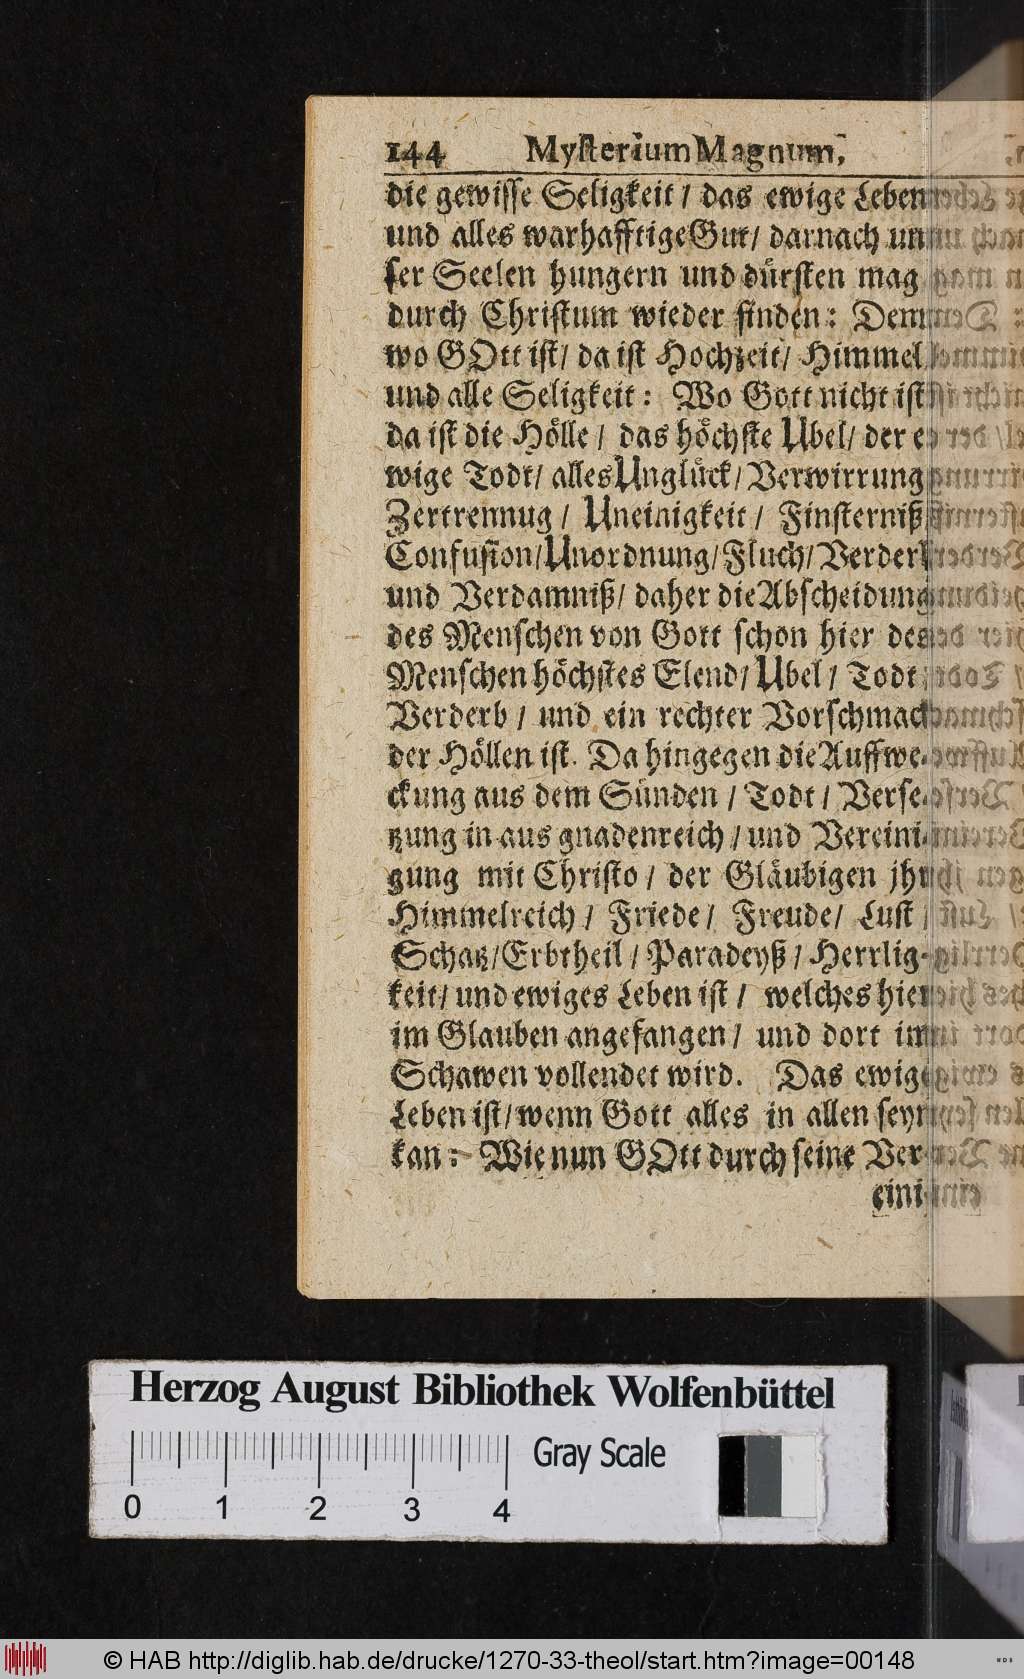 144 Mysterium Magnum,
die gewisse Seligkeit / das ewige Leben
und alles warhafftige Gut / darnach un
ser Seelen hungern und dürsten mag
durch Christum wieder finden: Denn
wo GOtt ist / da ist Hochzeit / Himmel
und alle Seligkeit: Wo Gott nicht ist
da ist die Hölle / das höchste Ubel / der e
wige Todt / alles Unglück / Verwirrung
Zertrennug / Uneinigkeit / Finsterniß
Confusion / Unordnung / Fluch / Verderb
und Verdamniß / daher die Abscheidung
des Menschen von Gott schon hier des
Menschen höchstes Elend / Ubel / Todt
Verderb / und ein rechter Vorschmack
der Höllen ist. Da hingegen die Auffwe-
ckung aus dem Sünden / Todt / Verse-
tzung in aus gnadenreich / und Vereini-
gung mit Christo / der Gläubigen jhr
Himmelreich / Friede / Freude / Lust /
Schatz / Erbtheil / Paradeyß / Herrlig-
keit / und ewiges Leben ist / welches hier
im Glauben angefangen / und dort im
Schawen vollendet wird. Das ewige
Leben ist / wenn Gott alles in allen seyn
kan: Wie nun GOtt durch seine Ver-
eini-
Herzog August Bibliothek Wolfenbüttel
Gray Scale
0 1 2 3 4
© HAB http://diglib.hab.de/drucke/1270-33-theol/start.htm?image=00148